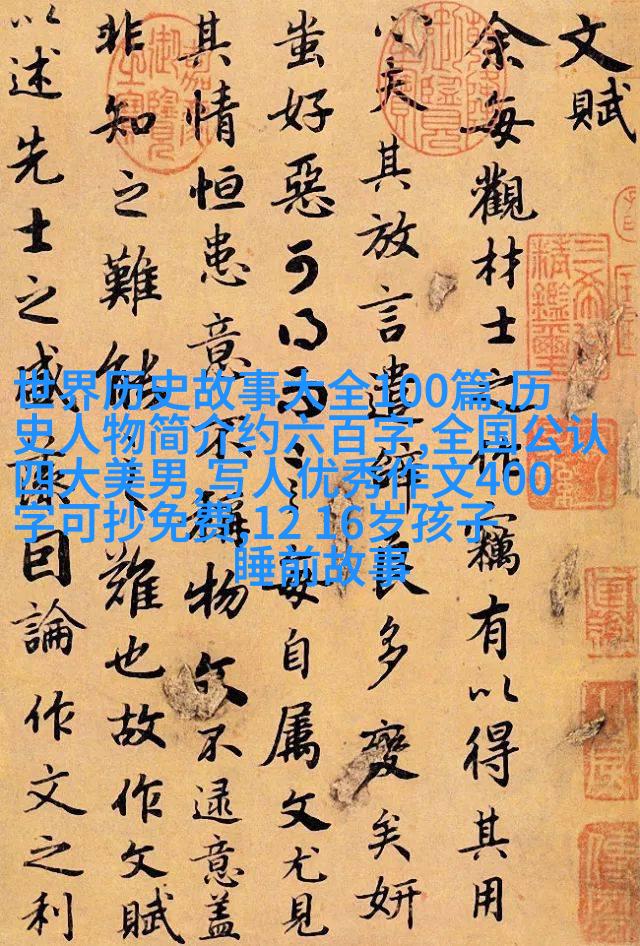 文賦
余每觀材士之作竊有以得其用
心夫其放言遣辭良多變矣妍
蚩好惡可得而言每自屬文尤見
其情恒患意不稱物文不逮意蓋
非知之難能之難也故作文賦
以述先士之盛藻因論作文之利
世界历史故事大全100篇,历
史人物简介约六百字,全国公认
四大美男,写人优秀作文400
字可抄免费,12 16岁孩子
睡前故事